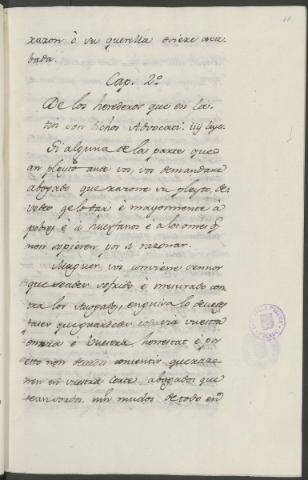 razon ó su querella oviere acabada.
Cap. 2º
De los bozeros que en la
tin son dichos Advocati. iiij leyes.
Si alguna de las partes que
an pleyto ante vos, vos demandare
abogado que razone su pleyto, de
vedes gelo dar é mayormente á
pobres é á huerfanos é a los omes q
non sopieren por si razonar.
Maguer, vos conviene sennor
que seades sofrido é mesurado con
tra los Avogados, en guisa lo devedes
facer que guardedes todavia vuestra
onrra é vuestra honestat é por
esto non devedes consentir que razo
nen en vuestra Corte, abogados que
sean sordos, nin mudos de todo en